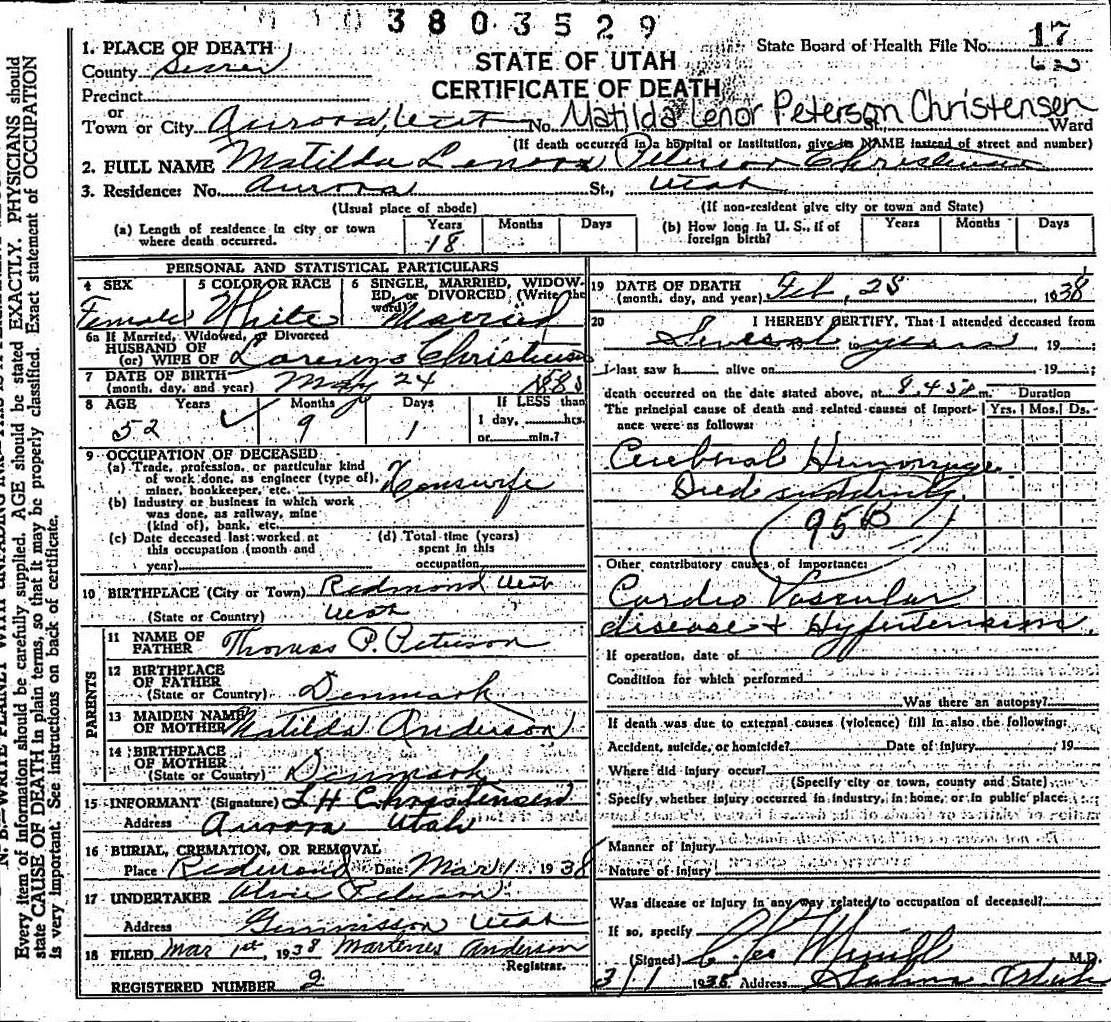 3803529
1. PLACE OF DEATH
County Sevier
Precinct
or
Town or City Aurora, Utah No. Matilda Lenor Peterson Christensen St., Ward
(If death occurred in a hospital or institution, give its NAME instead of street and number)
STATE OF UTAH
CERTIFICATE OF DEATH
State Board of Health File No. 17
2. FULL NAME Matilda Lenora Peterson Christensen
3. Residence: No. Aurora St., Utah
(Usual place of abode) (If non-resident give city or town and State)
(a) Length of residence in city or town where death occurred. Years 18 Months Days
(b) How long in U. S., if of foreign birth? Years Months Days
PERSONAL AND STATISTICAL PARTICULARS
4 SEX Female
5 COLOR OR RACE White
6 SINGLE, MARRIED, WIDOWED, or DIVORCED (Write the word) Married
6a If Married, Widowed, or Divorced
HUSBAND OF
(or) WIFE OF Lorenzo Christensen
7 DATE OF BIRTH
(month, day, and year) May 24
8 AGE Years 52 Months 9 Days 1 If LESS than
1 day, hrs.
or min.?
9 OCCUPATION OF DECEASED
(a) Trade, profession, or particular kind
of work done, as engineer (type of),
miner, bookkeeper, etc. Housewife
(b) Industry or business in which work
was done, as railway, mine
(kind of), bank, etc.
(c) Date deceased last worked at
this occupation (month and
year)
(d) Total time (years)
spent in this
occupation
10 BIRTHPLACE (City or Town) Redmond Utah
(State or Country) Utah
PARENTS
11 NAME OF
FATHER Thomas P. Peterson
12 BIRTHPLACE
OF FATHER
(State or Country) Denmark
13 MAIDEN NAME
OF MOTHER Matilda Anderson
14 BIRTHPLACE
OF MOTHER
(State or Country) Denmark
15 INFORMANT (Signature) L H Christensen
Address Aurora Utah
16 BURIAL, CREMATION, OR REMOVAL
Place Redmond Date Mar 1 1938
17 UNDERTAKER
Address Gunnison Utah
18 FILED Mar 1st, 1938 Anderson
Registrar.
REGISTERED NUMBER 2
19 DATE OF DEATH
(month, day, and year) Feb, 25 1938
20 I HEREBY CERTIFY, That I attended deceased from
Several years 19
I last saw h alive on 19
death occurred on the date stated above, at m. Duration
The principal cause of death and related causes of importance were as follows: Yrs. Mos. Ds.
Cerebral Hemorrage
Died suddenly
95 B
Other contributory causes of importance:
Cardio Vascular
disease & Hypertension.
If operation, date of
Condition for which performed
Was there an autopsy?
If death was due to external causes (violence) fill in also the following:
Accident, suicide, or homicide? Date of injury 19
Where did injury occur?
(Specify city or town, county and State)
Specify whether injury occurred in industry, in home, or in public place:
Manner of injury
Nature of injury
Was disease or injury in any way related to occupation of deceased?
If so, specify
(Signed) M.D.
3/1 1938 Address Salina Utah
Every item of information should be carefully supplied. AGE should be stated EXACTLY. PHYSICIANS should
state CAUSE OF DEATH in plain terms, so that it may be properly classified. Exact statement of OCCUPATION
is very important. See instructions on back of certificate.